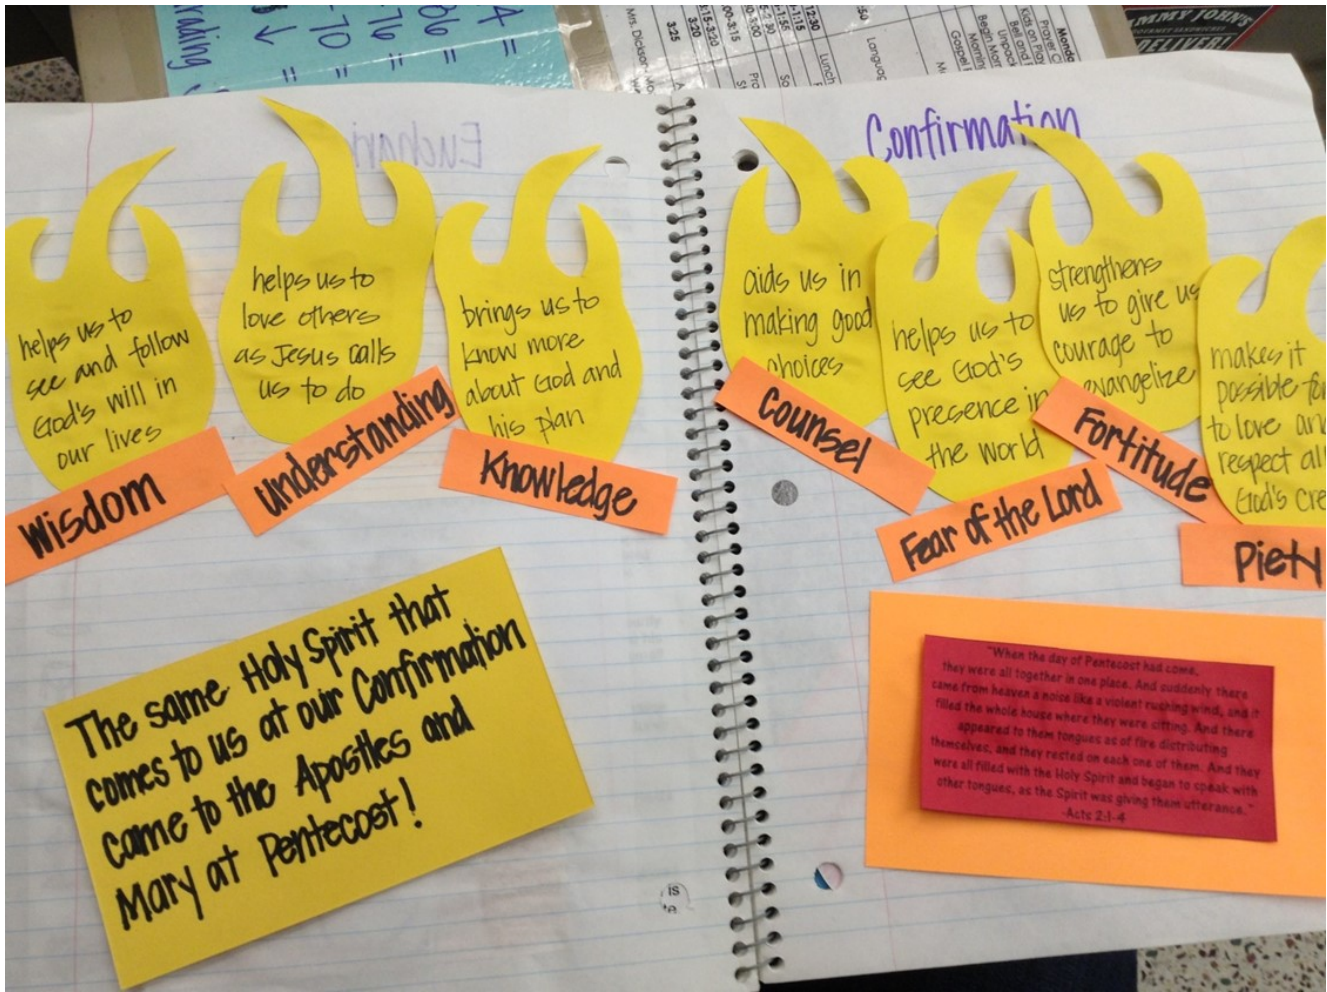 Confirmation
helps us to
see and follow
God's will in
our lives
Wisdom
helps us to
love others
as Jesus calls
us to do
Understanding
brings us to
know more
about God and
his plan
Knowledge
aids us in
making good
choices
Counsel
helps us to
see God's
presence in
the world
Fear of the Lord
strengthens
us to give us
courage to
evangelize
Fortitude
makes it
possible for
to love and
respect all
God's Cre
Piety
The same Holy Spirit that
comes to us at our Confirmation
came to the Apostles and
Mary at Pentecost!
"When the day of Pentecost had come,
they were all together in one place. And suddenly there
came from heaven a noise like a violent rushing wind, and it
filled the whole house where they were sitting. And there
appeared to them tongues as of fire distributing
themselves, and they rested on each one of them. And they
were all filled with the Holy Spirit and began to speak with
other tongues, as the Spirit was giving them utterance."
-Acts 2:1-4
Euchari
is
te
rading
-70 =
-76 =
86 =
4 =
Mrs. Dickson
3:25
3:20
3:15-3:20
:00-3:15
1:15
12:30
:50
Lunch
Languag
Gospel
Begin
Unpack
Bell and
Kids on Play
Prayer
Monda
IMMY JOHN'S
DELIVER!